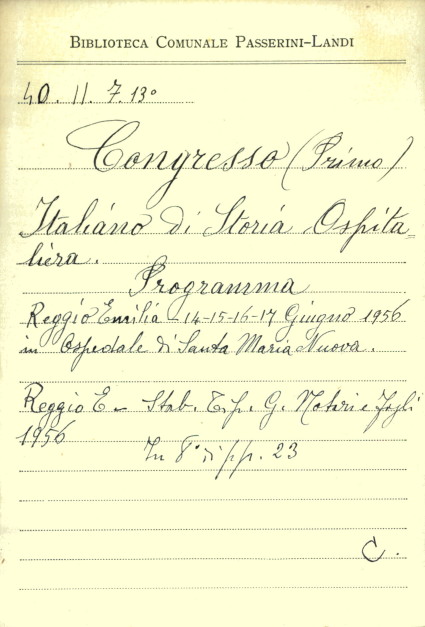 BIBLIOTECA COMUNALE PASSERINI-LANDI
40. II. 7. 13°
Congresso (Primo)
Italiano di Storia Ospita=
liera.
Programma
Reggio Emilia - 14-15-16-17 Giugno 1956
in Ospedale di Santa Maria Nuova.
Reggio E - Stab. Tip. G. Notari e Figli
1956
In 8° di pp. 23
C.